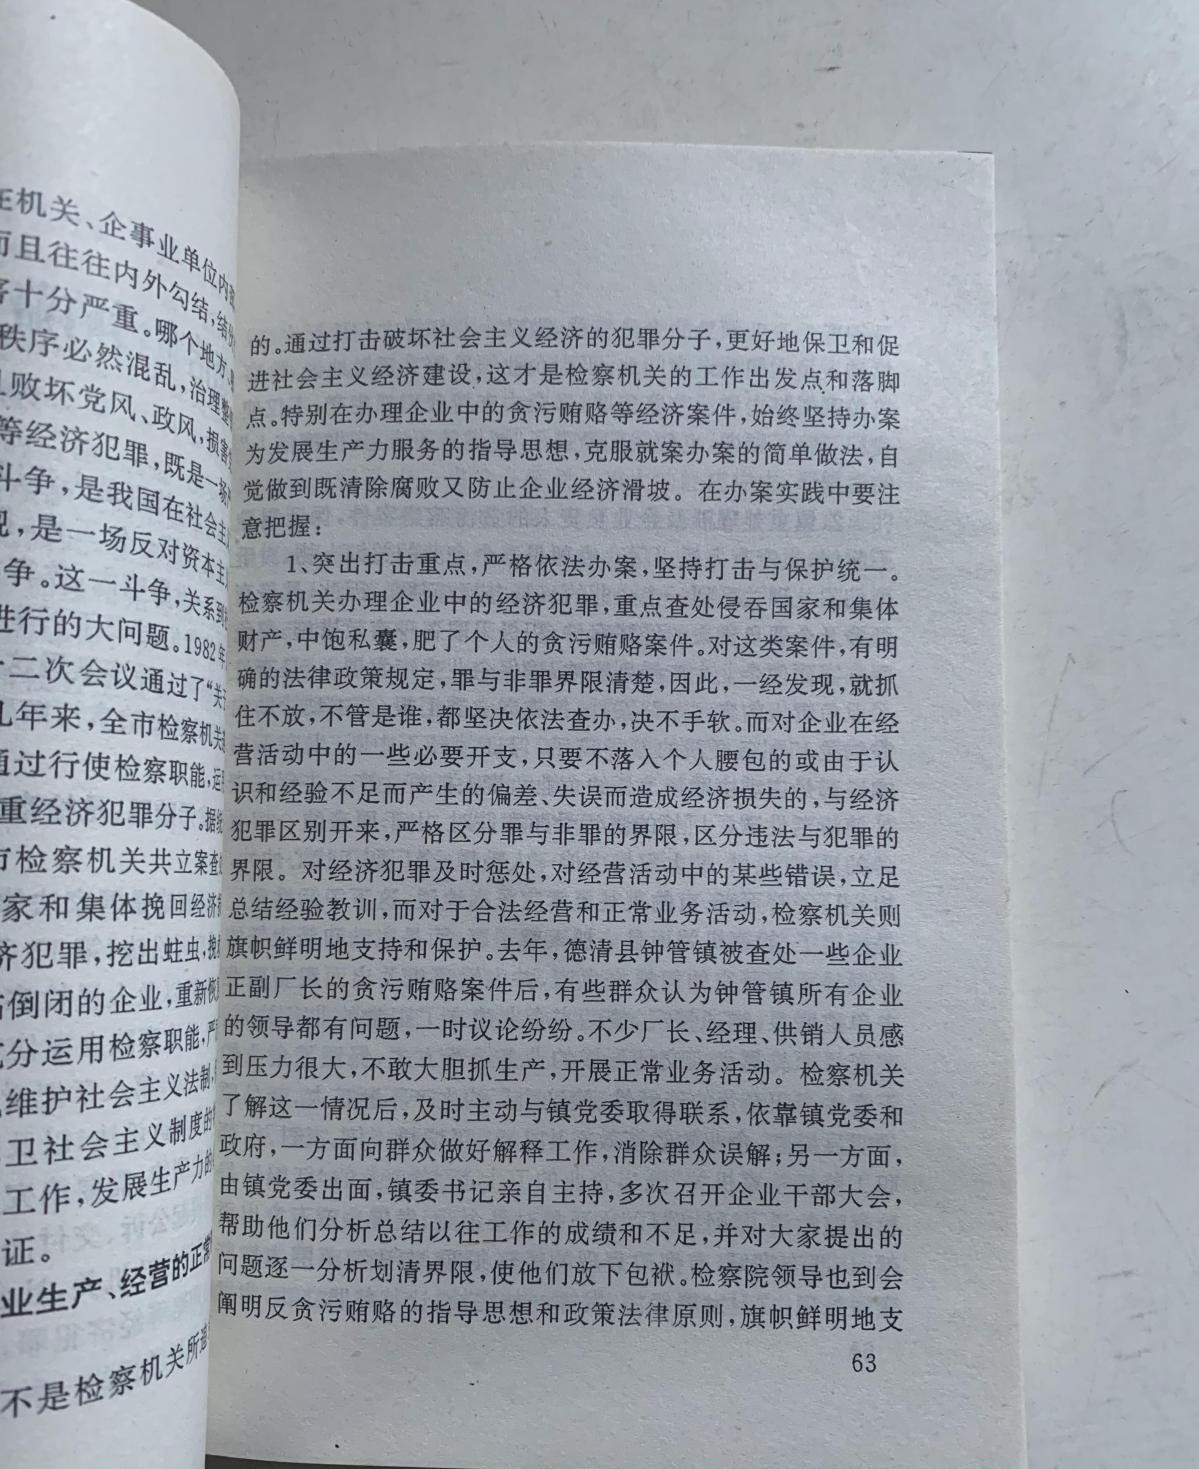 在机关、企事业单位内
而且往往内外勾结,结
十分严重。哪个地方、
秩序必然混乱,治理整
败坏党风、政风,损害
等经济犯罪,既是一场
斗争,是我国在社会主
,是一场反对资本主
争。这一斗争,关系到
进行的大问题。1982年
十二次会议通过了“关
几年来,全市检察机关
通过行使检察职能,运
重经济犯罪分子。据
市检察机关共立案查
家和集体挽回经济
济犯罪,挖出蛀虫,挽
倒闭的企业,重新恢
充分运用检察职能,严
维护社会主义法制,
卫社会主义制度的
工作,发展生产力的
证。
业生产、经营的正常
不是检察机关所
的。通过打击破坏社会主义经济的犯罪分子,更好地保卫和促
进社会主义经济建设,这才是检察机关的工作出发点和落脚
点。特别在办理企业中的贪污贿赂等经济案件,始终坚持办案
为发展生产力服务的指导思想,克服就案办案的简单做法,自
觉做到既清除腐败又防止企业经济滑坡。在办案实践中要注
意把握:
1、突出打击重点,严格依法办案,坚持打击与保护统一。
检察机关办理企业中的经济犯罪,重点查处侵吞国家和集体
财产,中饱私囊,肥了个人的贪污贿赂案件。对这类案件,有明
确的法律政策规定,罪与非罪界限清楚,因此,一经发现,就抓
住不放,不管是谁,都坚决依法查办,决不手软。而对企业在经
营活动中的一些必要开支,只要不落入个人腰包的或由于认
识和经验不足而产生的偏差、失误而造成经济损失的,与经济
犯罪区别开来,严格区分罪与非罪的界限,区分违法与犯罪的
界限。对经济犯罪及时惩处,对经营活动中的某些错误,立足
总结经验教训,而对于合法经营和正常业务活动,检察机关则
旗帜鲜明地支持和保护。去年,德清县钟管镇被查处一些企业
正副厂长的贪污贿赂案件后,有些群众认为钟管镇所有企业
的领导都有问题,一时议论纷纷。不少厂长、经理、供销人员感
到压力很大,不敢大胆抓生产,开展正常业务活动。检察机关
了解这一情况后,及时主动与镇党委取得联系,依靠镇党委和
政府,一方面向群众做好解释工作,消除群众误解;另一方面,
由镇党委出面,镇委书记亲自主持,多次召开企业干部大会,
帮助他们分析总结以往工作的成绩和不足,并对大家提出的
问题逐一分析划清界限,使他们放下包袱。检察院领导也到会
阐明反贪污贿赂的指导思想和政策法律原则,旗帜鲜明地支
63